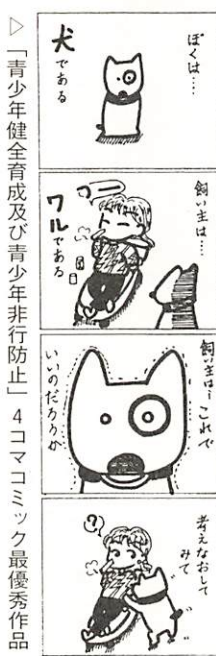 ぼくは……
犬
である
飼い主は…
ワル
である
飼い主は…これで
いいのだろうか
考えなおして
みて
?
▷「青少年健全育成及び青少年非行防止」4コマコミック最優秀作品